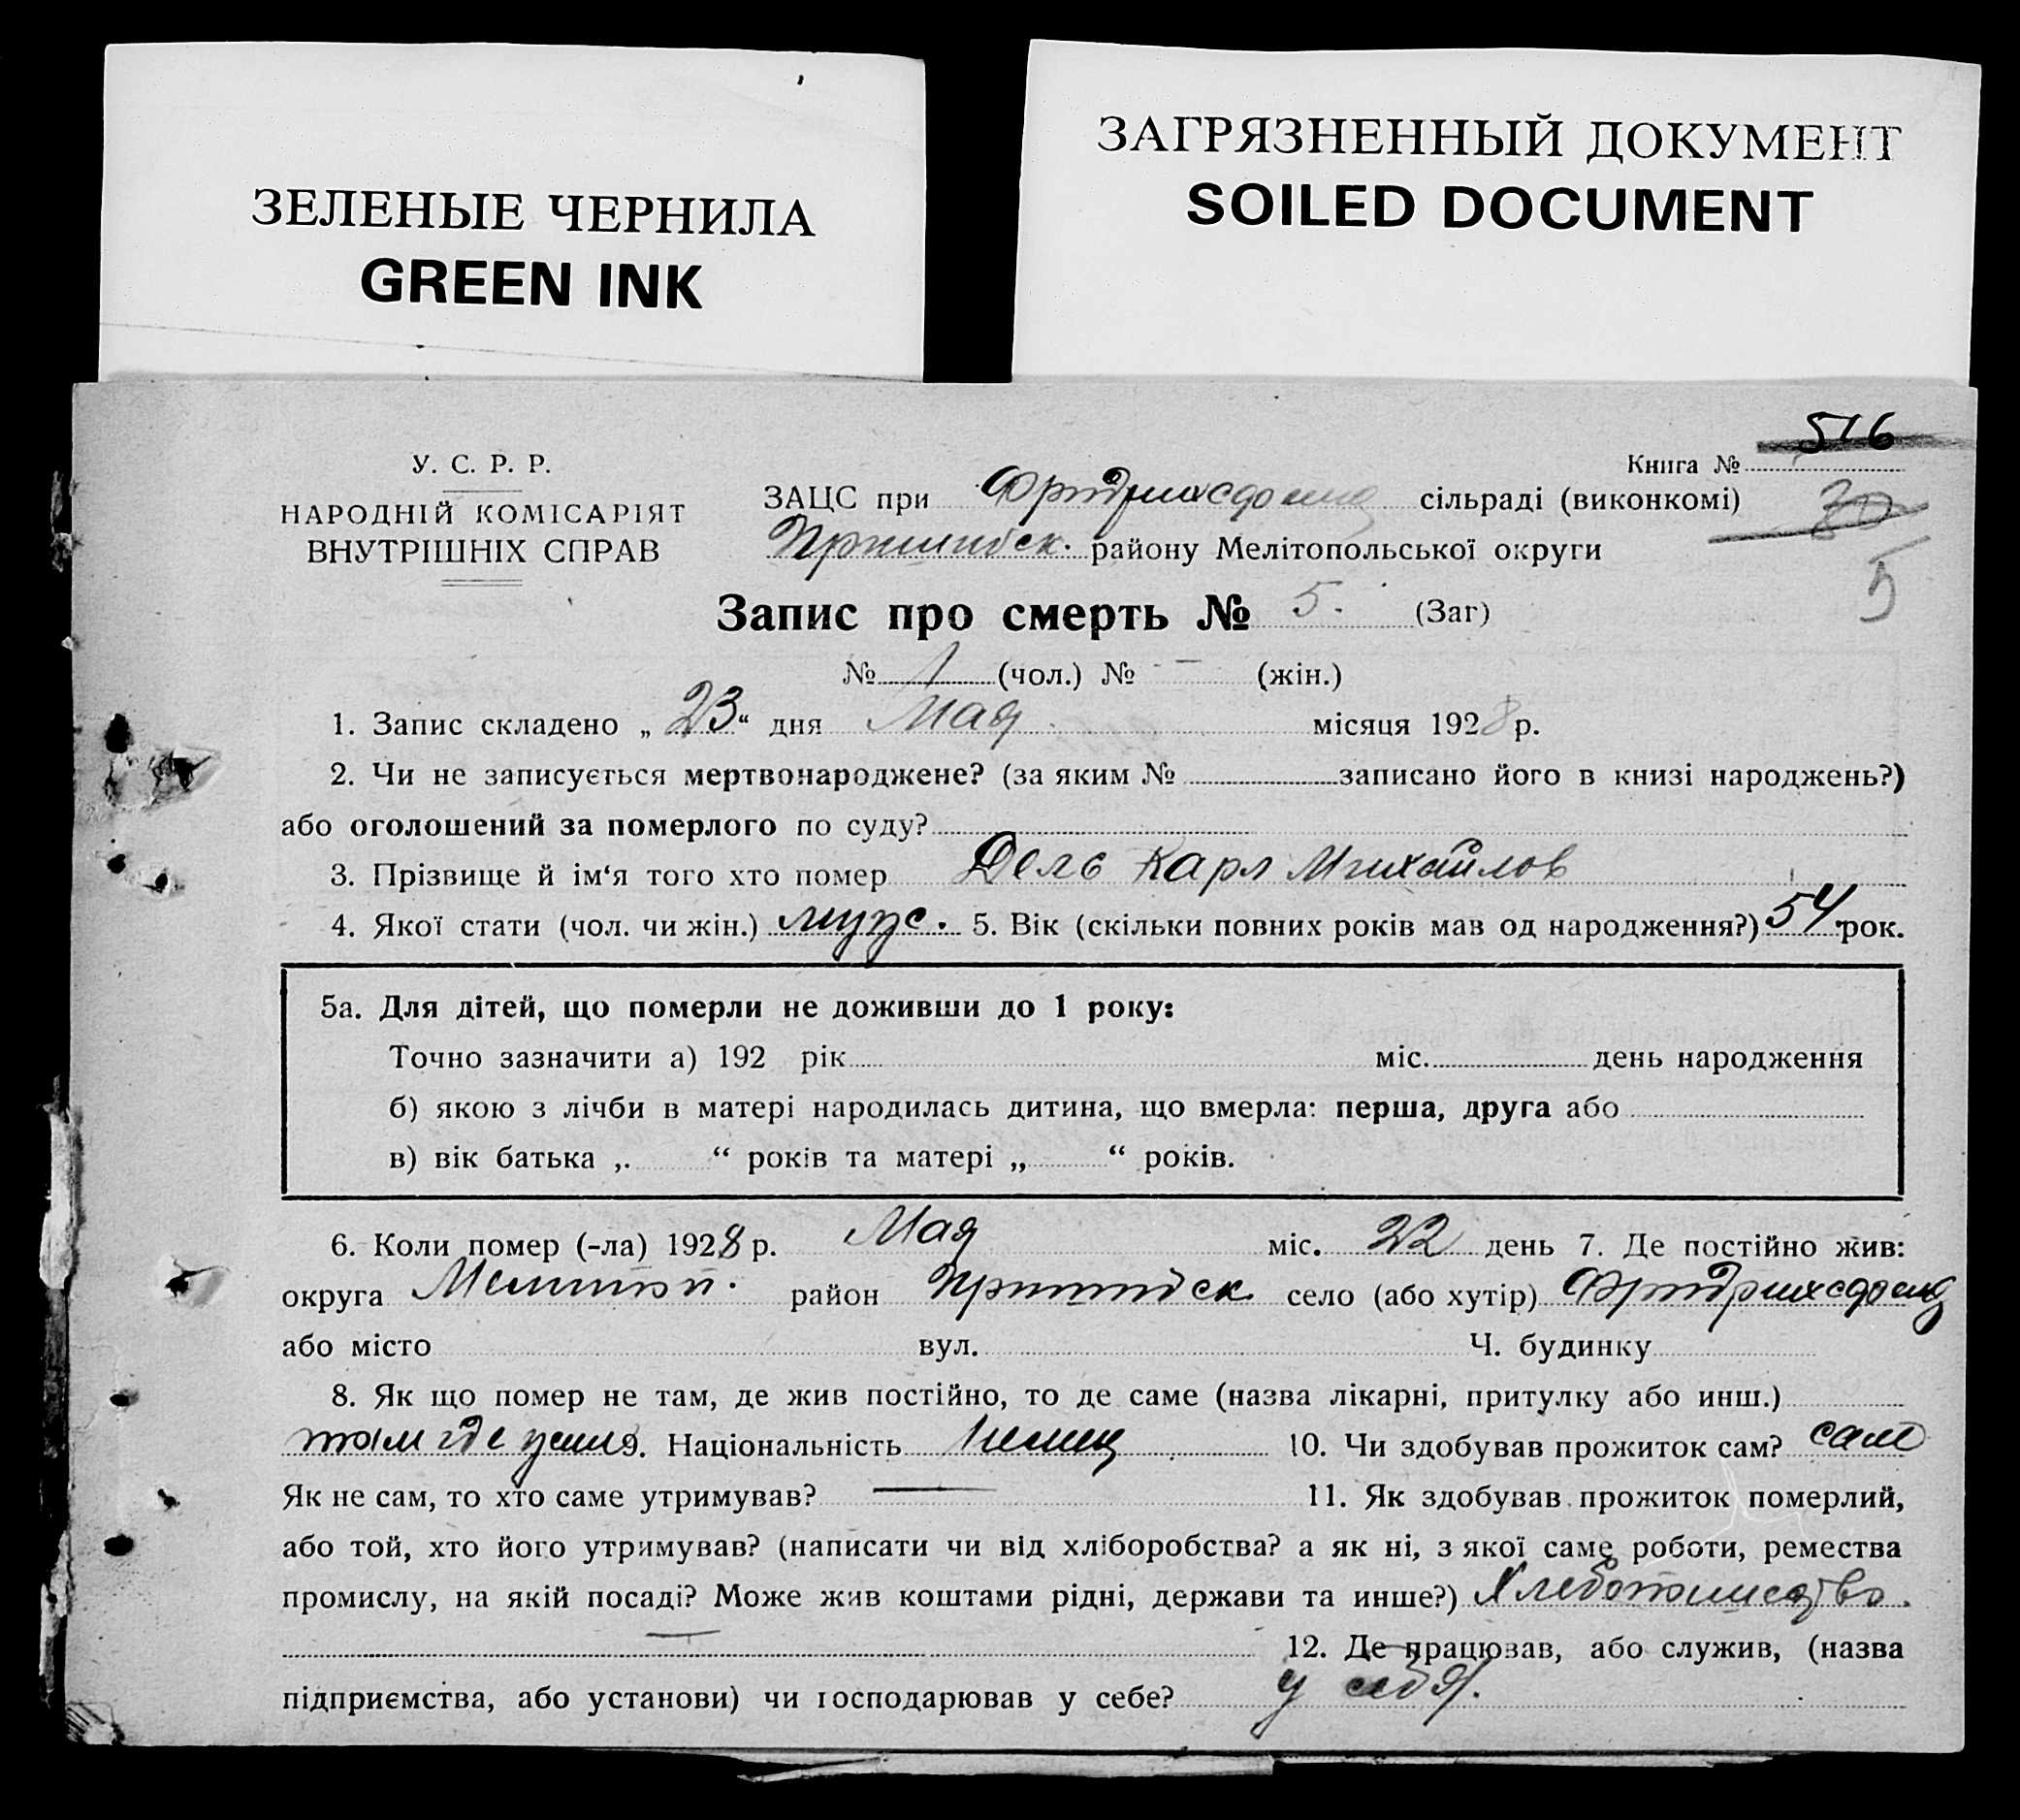 ЗЕЛЕНЫЕ ЧЕРНИЛА
GREEN INK
ЗАГРЯЗНЕННЫЙ ДОКУМЕНТ
SOILED DOCUMENT
516
У. С. Р. Р.
НАРОДНІЙ КОМІСАРІЯТ
ВНУТРІШНІХ СПРАВ
Книга №
ЗАЦС при Фридрихсфельд сільраді (виконкомі)
Пришибск. району Мелітопольської округи
5
Запис про смерть № 5. (Заг)
№ 1 (чол.) № — (жін.)
1. Запис складено „ 23 “ дня Мая місяця 1928 р.
2. Чи не записується мертвонароджене? (за яким № записано його в книзі народжень?)
або оголошений за померлого по суду?
3. Прізвище й ім‘я того хто помер Дель Карл Михайлов
4. Якої стати (чол. чи жін.) мужс. 5. Вік (скільки повних років мав од народження?) 54 рок.
5а. Для дітей, що померли не доживши до 1 року:
Точно зазначити а) 192 рік міс. день народження
б) якою з лічби в матері народилась дитина, що вмерла: перша, друга або
в) вік батька „ “ років та матері „ “ років.
6. Коли помер (-ла) 1928 р. Мая міс. 22 день 7. Де постійно жив:
округа Мелитоп. район Пришибск село (або хутір) Фридрихсфельд
або місто вул. Ч. будинку
8. Як що помер не там, де жив постійно, то де саме (назва лікарні, притулку або инш.)
там где жил 9. Національність Немец 10. Чи здобував прожиток сам? сам
Як не сам, то хто саме утримував? — 11. Як здобував прожиток померлий,
або той, хто його утримував? (написати чи від хліборобства? а як ні, з якої саме роботи, ремества
промислу, на якій посаді? Може жив коштами рідні, держави та инше?) Хлебопашество.
— 12. Де працював, або служив, (назва
підприємства, або установи) чи господарював у себе? у себя.